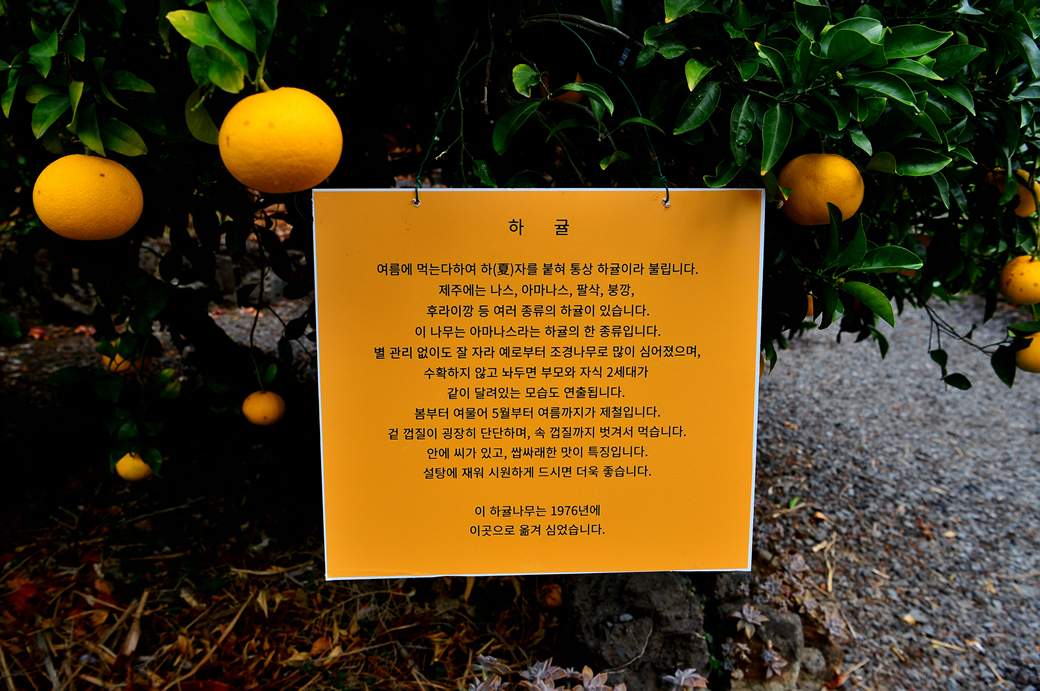 하 귤
여름에 먹는다하여 하(夏)자를 붙혀 통상 하귤이라 불립니다.
제주에는 나스, 아마나스, 팔삭, 붕깡,
후라이깡 등 여러 종류의 하귤이 있습니다.
이 나무는 아마나스라는 하귤의 한 종류입니다.
별 관리 없이도 잘 자라 예로부터 조경나무로 많이 심어졌으며,
수확하지 않고 놔두면 부모와 자식 2세대가
같이 달려있는 모습도 연출됩니다.
봄부터 여물어 5월부터 여름까지가 제철입니다.
겉 껍질이 굉장히 단단하며, 속 껍질까지 벗겨서 먹습니다.
안에 씨가 있고, 쌉싸래한 맛이 특징입니다.
설탕에 재워 시원하게 드시면 더욱 좋습니다.
이 하귤나무는 1976년에
이곳으로 옮겨 심었습니다.